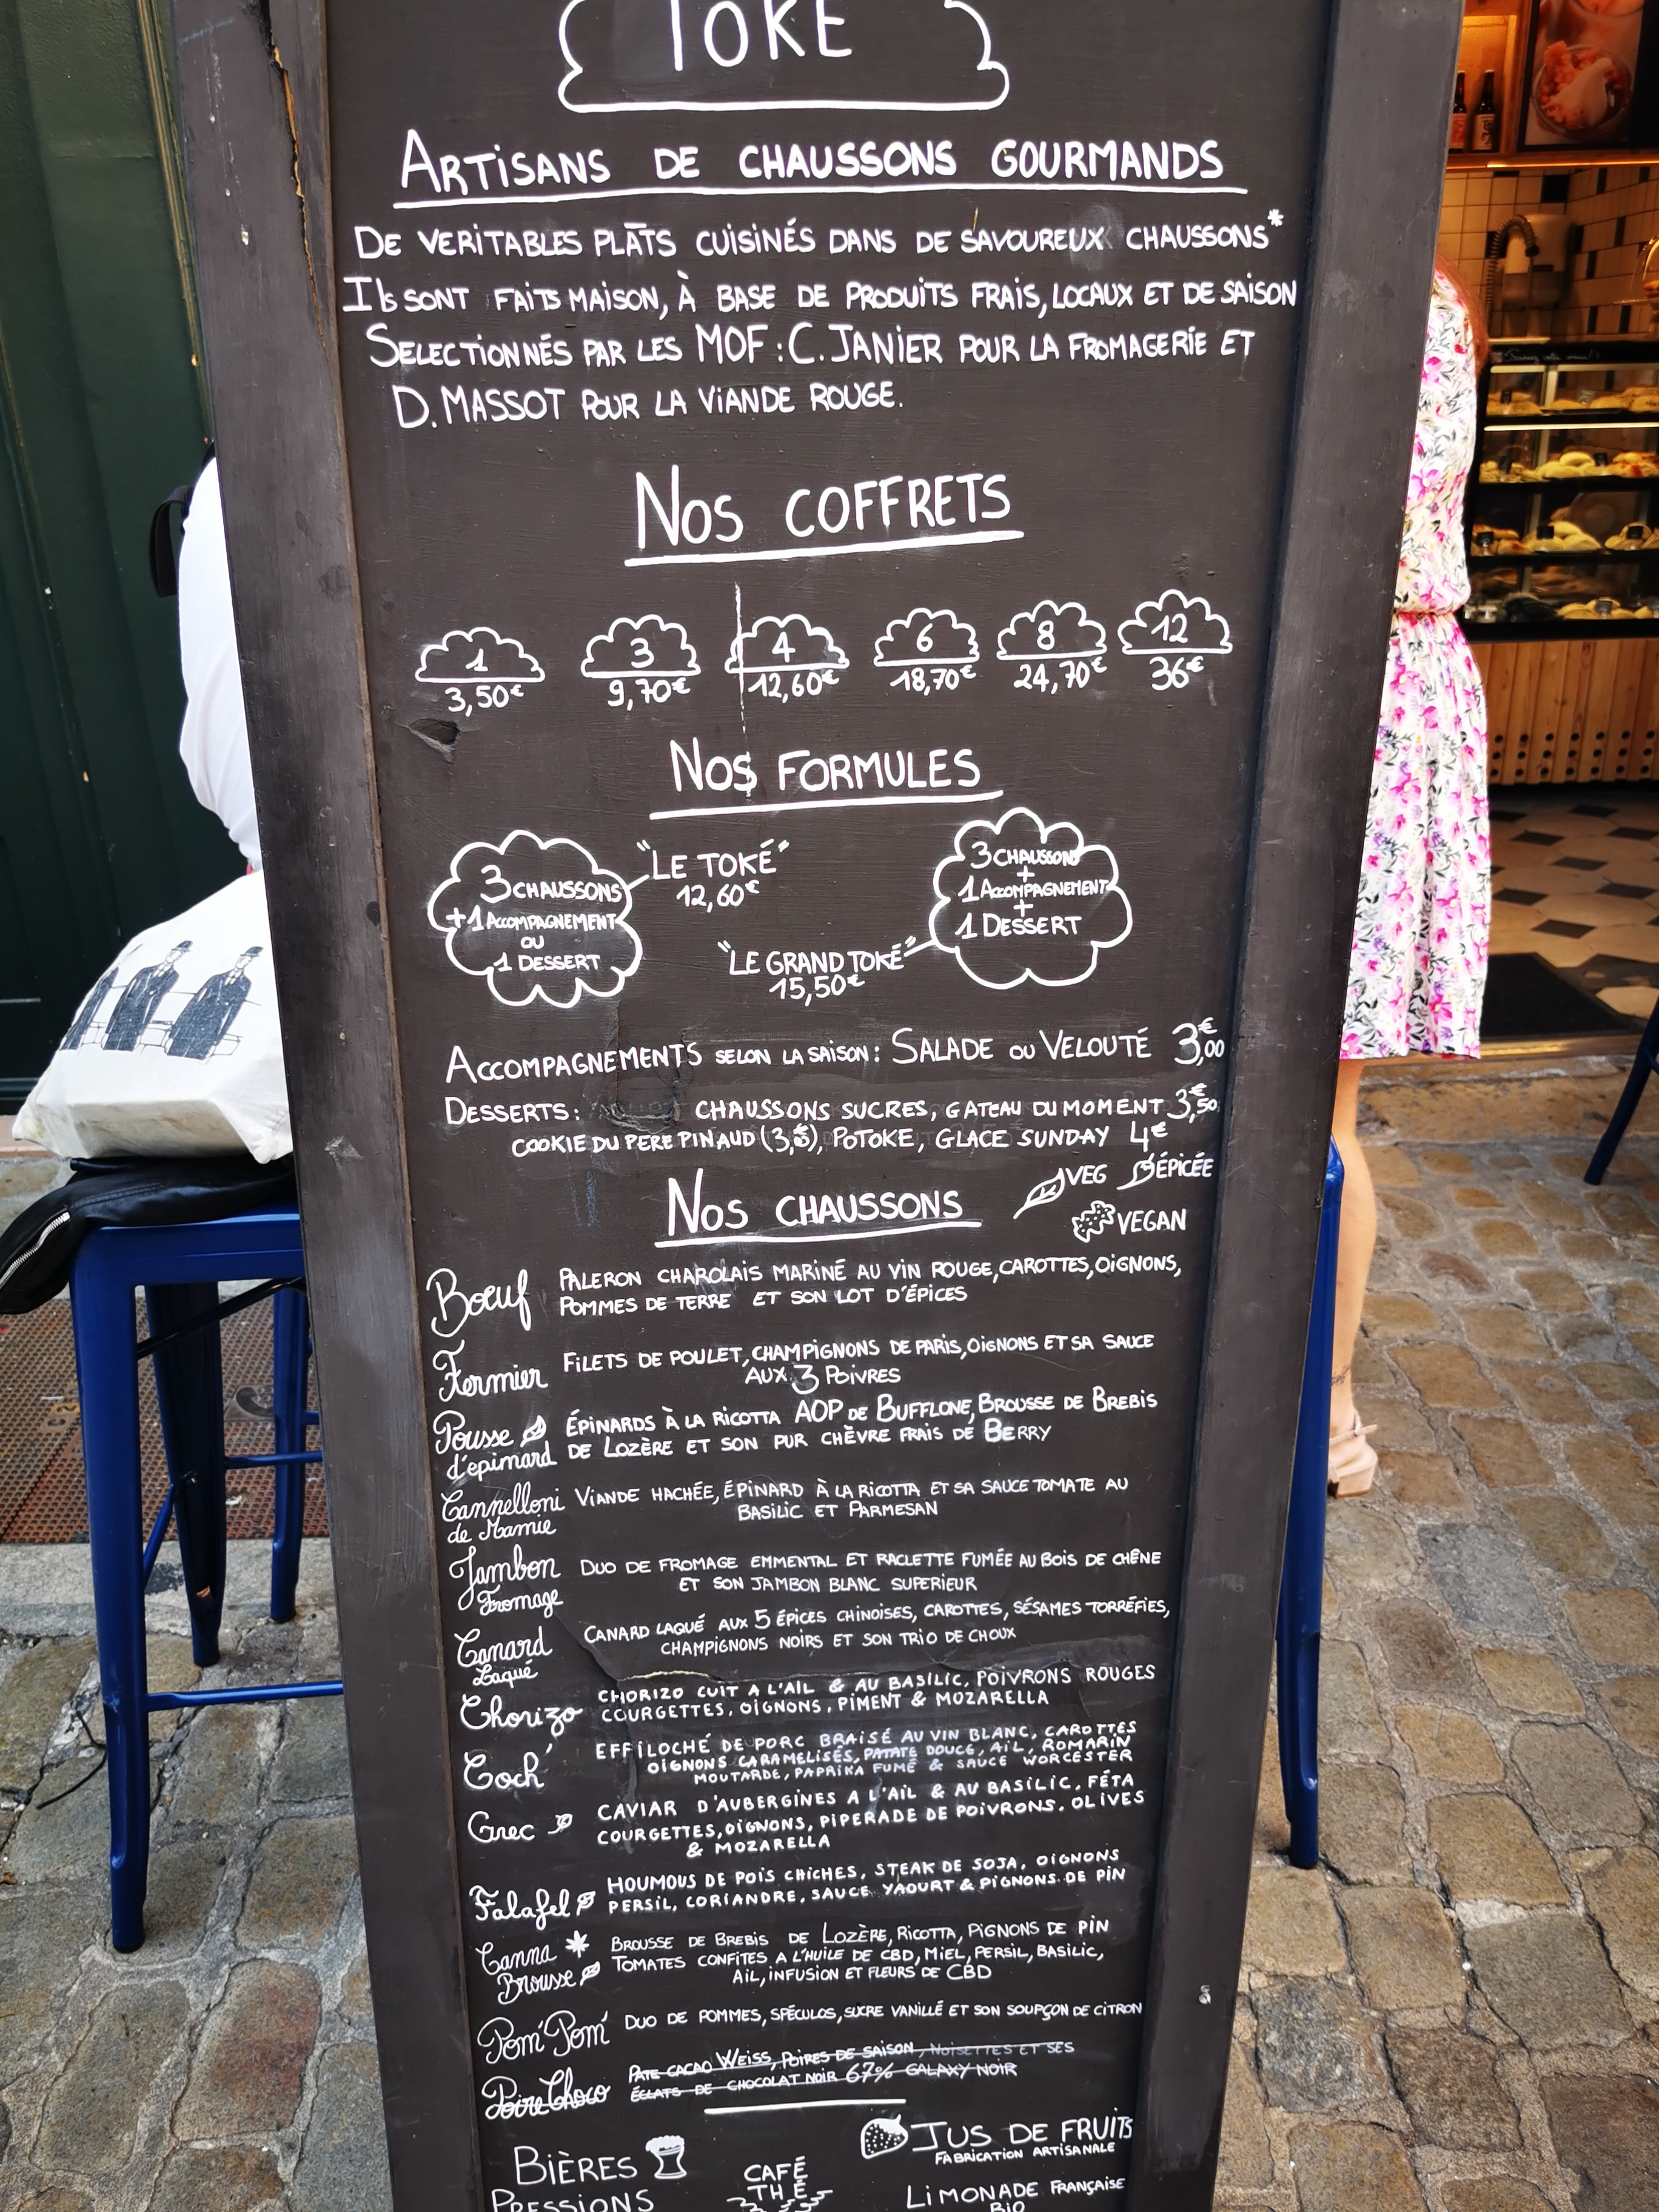 TOKÉ
ARTISANS DE CHAUSSONS GOURMANDS
DE VERITABLES PLATS CUISINÉS DANS DE SAVOUREUX CHAUSSONS*
ILS SONT FAITS MAISON, À BASE DE PRODUITS FRAIS, LOCAUX ET DE SAISON
SELECTIONNÉS PAR LES MOF : C. JANIER POUR LA FROMAGERIE ET
D. MASSOT POUR LA VIANDE ROUGE.
NOS COFFRETS
1 3 4 6 8 12
3,50€ 9,70€ 12,60€ 18,70€ 24,70€ 36€
NOS FORMULES
3 CHAUSSONS
+ 1 ACCOMPAGNEMENT
OU
1 DESSERT
"LE TOKÉ"
12,60€
3 CHAUSSONS
+
1 ACCOMPAGNEMENT
+
1 DESSERT
"LE GRAND TOKÉ"
15,50€
ACCOMPAGNEMENTS SELON LA SAISON : SALADE OU VELOUTÉ 3€,00
DESSERTS : CHAUSSONS SUCRES, GATEAU DU MOMENT 3€,50
COOKIE DU PERE PINAUD POTOKE, GLACE SUNDAY 4€
VEG ÉPICÉE
VEGAN
NOS CHAUSSONS
Bœuf PALERON CHAROLAIS MARINÉ AU VIN ROUGE, CAROTTES, OIGNONS,
POMMES DE TERRE ET SON LOT D'ÉPICES
Fermier FILETS DE POULET, CHAMPIGNONS DE PARIS, OIGNONS ET SA SAUCE
AUX 3 POIVRES
Pousse ÉPINARDS À LA RICOTTA AOP DE BUFFLONE, BROUSSE DE BREBIS
d'épinard DE LOZÈRE ET SON PUR CHÈVRE FRAIS DE BERRY
Cannelloni VIANDE HACHÉE, ÉPINARD À LA RICOTTA ET SA SAUCE TOMATE AU
de Mamie BASILIC ET PARMESAN
Jambon DUO DE FROMAGE EMMENTAL ET RACLETTE FUMÉE AU BOIS DE CHÊNE
Fromage ET SON JAMBON BLANC SUPERIEUR
Canard CANARD LAQUÉ AUX 5 ÉPICES CHINOISES, CAROTTES, SÉSAMES TORRÉFIES,
Laqué CHAMPIGNONS NOIRS ET SON TRIO DE CHOUX
Chorizo CHORIZO CUIT A L'AIL & AU BASILIC, POIVRONS ROUGES
COURGETTES, OIGNONS, PIMENT & MOZARELLA
Coch' EFFILOCHÉ DE PORC BRAISÉ AU VIN BLANC, CAROTTES
OIGNONS CARAMELISÉS, PATATE DOUCE, AIL, ROMARIN
MOUTARDE, PAPRIKA FUMÉ & SAUCE WORCESTER
Grec CAVIAR D'AUBERGINES A L'AIL & AU BASILIC, FÉTA
COURGETTES, OIGNONS, PIPERADE DE POIVRONS, OLIVES
& MOZARELLA
Falafel HOUMOUS DE POIS CHICHES, STEAK DE SOJA, OIGNONS
PERSIL, CORIANDRE, SAUCE YAOURT & PIGNONS DE PIN
Canna BROUSSE DE BREBIS DE LOZÈRE, RICOTTA, PIGNONS DE PIN
Brousse TOMATES CONFITES A L'HUILE DE CBD, MIEL, PERSIL, BASILIC,
AIL, INFUSION ET FLEURS DE CBD
Pom'Pom' DUO DE POMMES, SPÉCULOS, SUCRE VANILLÉ ET SON SOUPÇON DE CITRON
Poire Choco PATE CACAO WEISS, POIRES DE SAISON, NOISETTES ET SES
ÉCLATS DE CHOCOLAT NOIR 67% GALAXY NOIR
BIÈRES
PRESSIONS
CAFÉ
THÉ
JUS DE FRUITS
FABRICATION ARTISANALE
LIMONADE FRANÇAISE
BIO